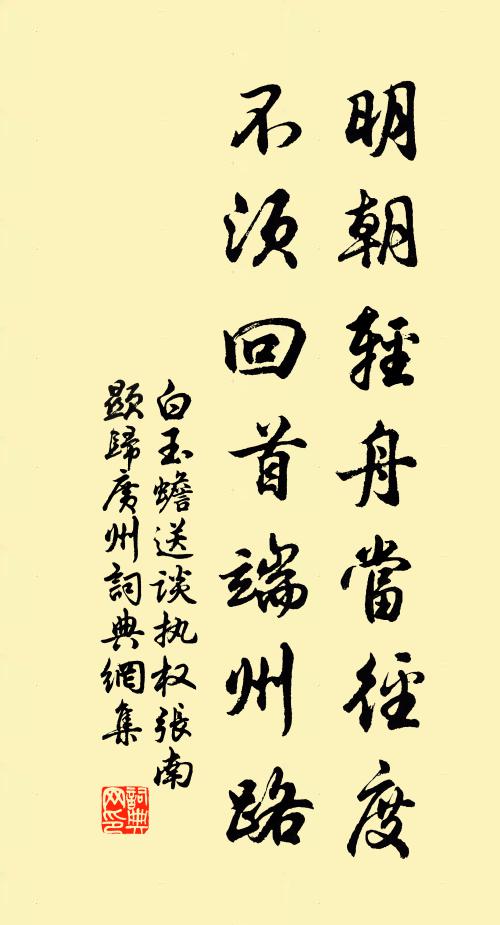 明朝輕舟當徑度
不須回首端州路
白玉蟾送談执权張南
顯歸廣州詞典網集
詞典网印